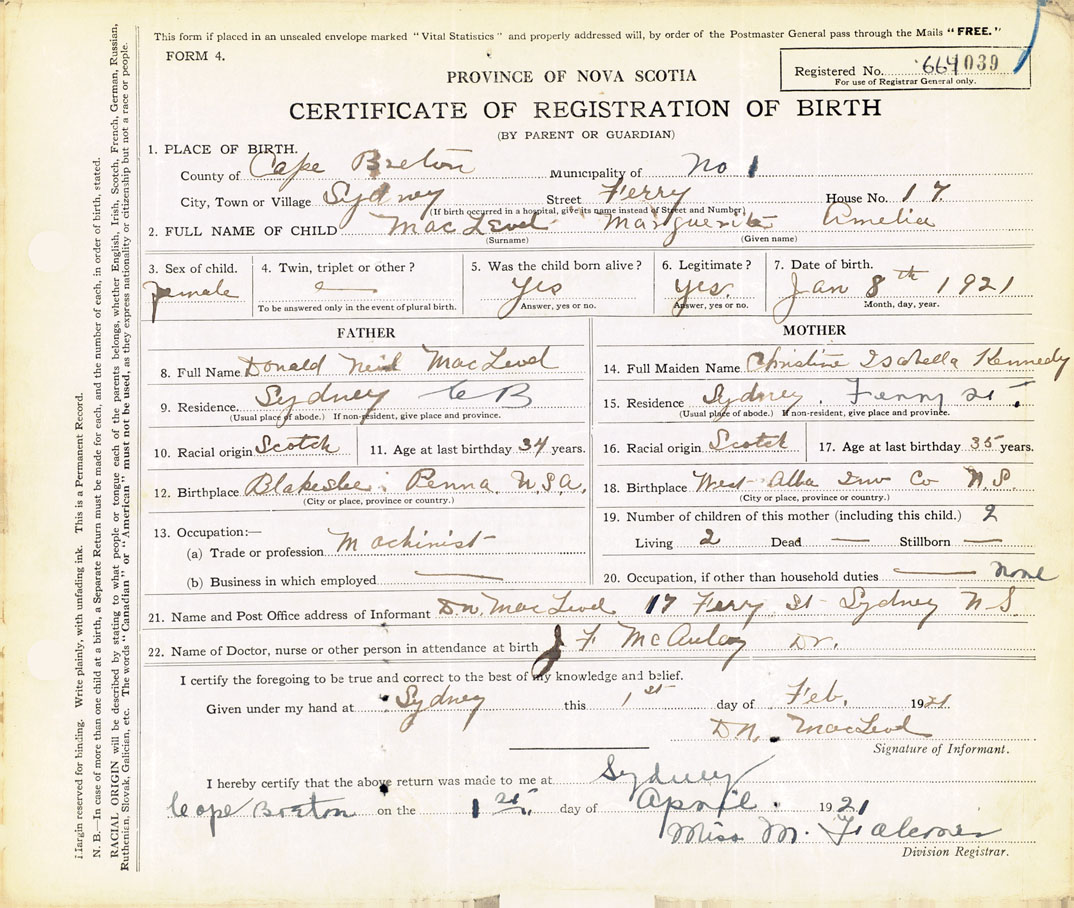 This form if placed in an unsealed envelope marked "Vital Statistics" and properly addressed will, by order of the Postmaster General pass through the Mails "FREE."
FORM 4.
Registered No. 664039
For use of Registrar General only.
PROVINCE OF NOVA SCOTIA
CERTIFICATE OF REGISTRATION OF BIRTH
(BY PARENT OR GUARDIAN)
1. PLACE OF BIRTH.
County of Cape Breton Municipality of No 1
City, Town or Village Sydney Street Ferry House No. 17.
(If birth occurred in a hospital, give its name instead of Street and Number)
2. FULL NAME OF CHILD MacLeod Marguerite Amelia
(Surname) (Given name)
3. Sex of child. 4. Twin, triplet or other? 5. Was the child born alive? 6. Legitimate? 7. Date of birth.
female — Yes yes. Jan 8th 1921
To be answered only in the event of plural birth. Answer, yes or no. Answer, yes or no. Month, day, year.
FATHER
8. Full Name Donald Neil MacLeod
9. Residence. Sydney C B
(Usual place of abode.) If non-resident, give place and province.
10. Racial origin Scotch 11. Age at last birthday 34 years.
12. Birthplace Penna. U.S.A.
(City or place, province or country.)
13. Occupation:—
(a) Trade or profession Machinist
(b) Business in which employed —
MOTHER
14. Full Maiden Name Christine Isabella Kennedy
15. Residence Sydney. Ferry St.
(Usual place of abode.) If non-resident, give place and province.
16. Racial origin Scotch 17. Age at last birthday 35 years.
18. Birthplace West Alba Inv Co N.S.
(City or place, province or country.)
19. Number of children of this mother (including this child.) 2
Living 2 Dead — Stillborn —
20. Occupation, if other than household duties — None
21. Name and Post Office address of Informant D.N. MacLeod 17 Ferry St Sydney N S
22. Name of Doctor, nurse or other person in attendance at birth J F McAulay Dr.
I certify the foregoing to be true and correct to the best of my knowledge and belief.
Given under my hand at Sydney this 1st day of Feb. 1921
D.N. MacLeod
Signature of Informant.
I hereby certify that the above return was made to me at Sydney
Cape Breton on the 1st. day of April. 1921
Miss M. Falconer
Division Registrar.
Margin reserved for binding. Write plainly, with unfading ink. This is a Permanent Record.
N. B.—In case of more than one child at a birth, a Separate Return must be made for each, and the number of each, in order of birth, stated.
RACIAL ORIGIN will be described by stating to what people or tongue each of the parents belongs, whether English, Irish, Scotch, French, German, Russian,
Ruthenian, Slovak, Galician, etc. The words "Canadian" or "American" must not be used, as they express nationality or citizenship but not a race or people.